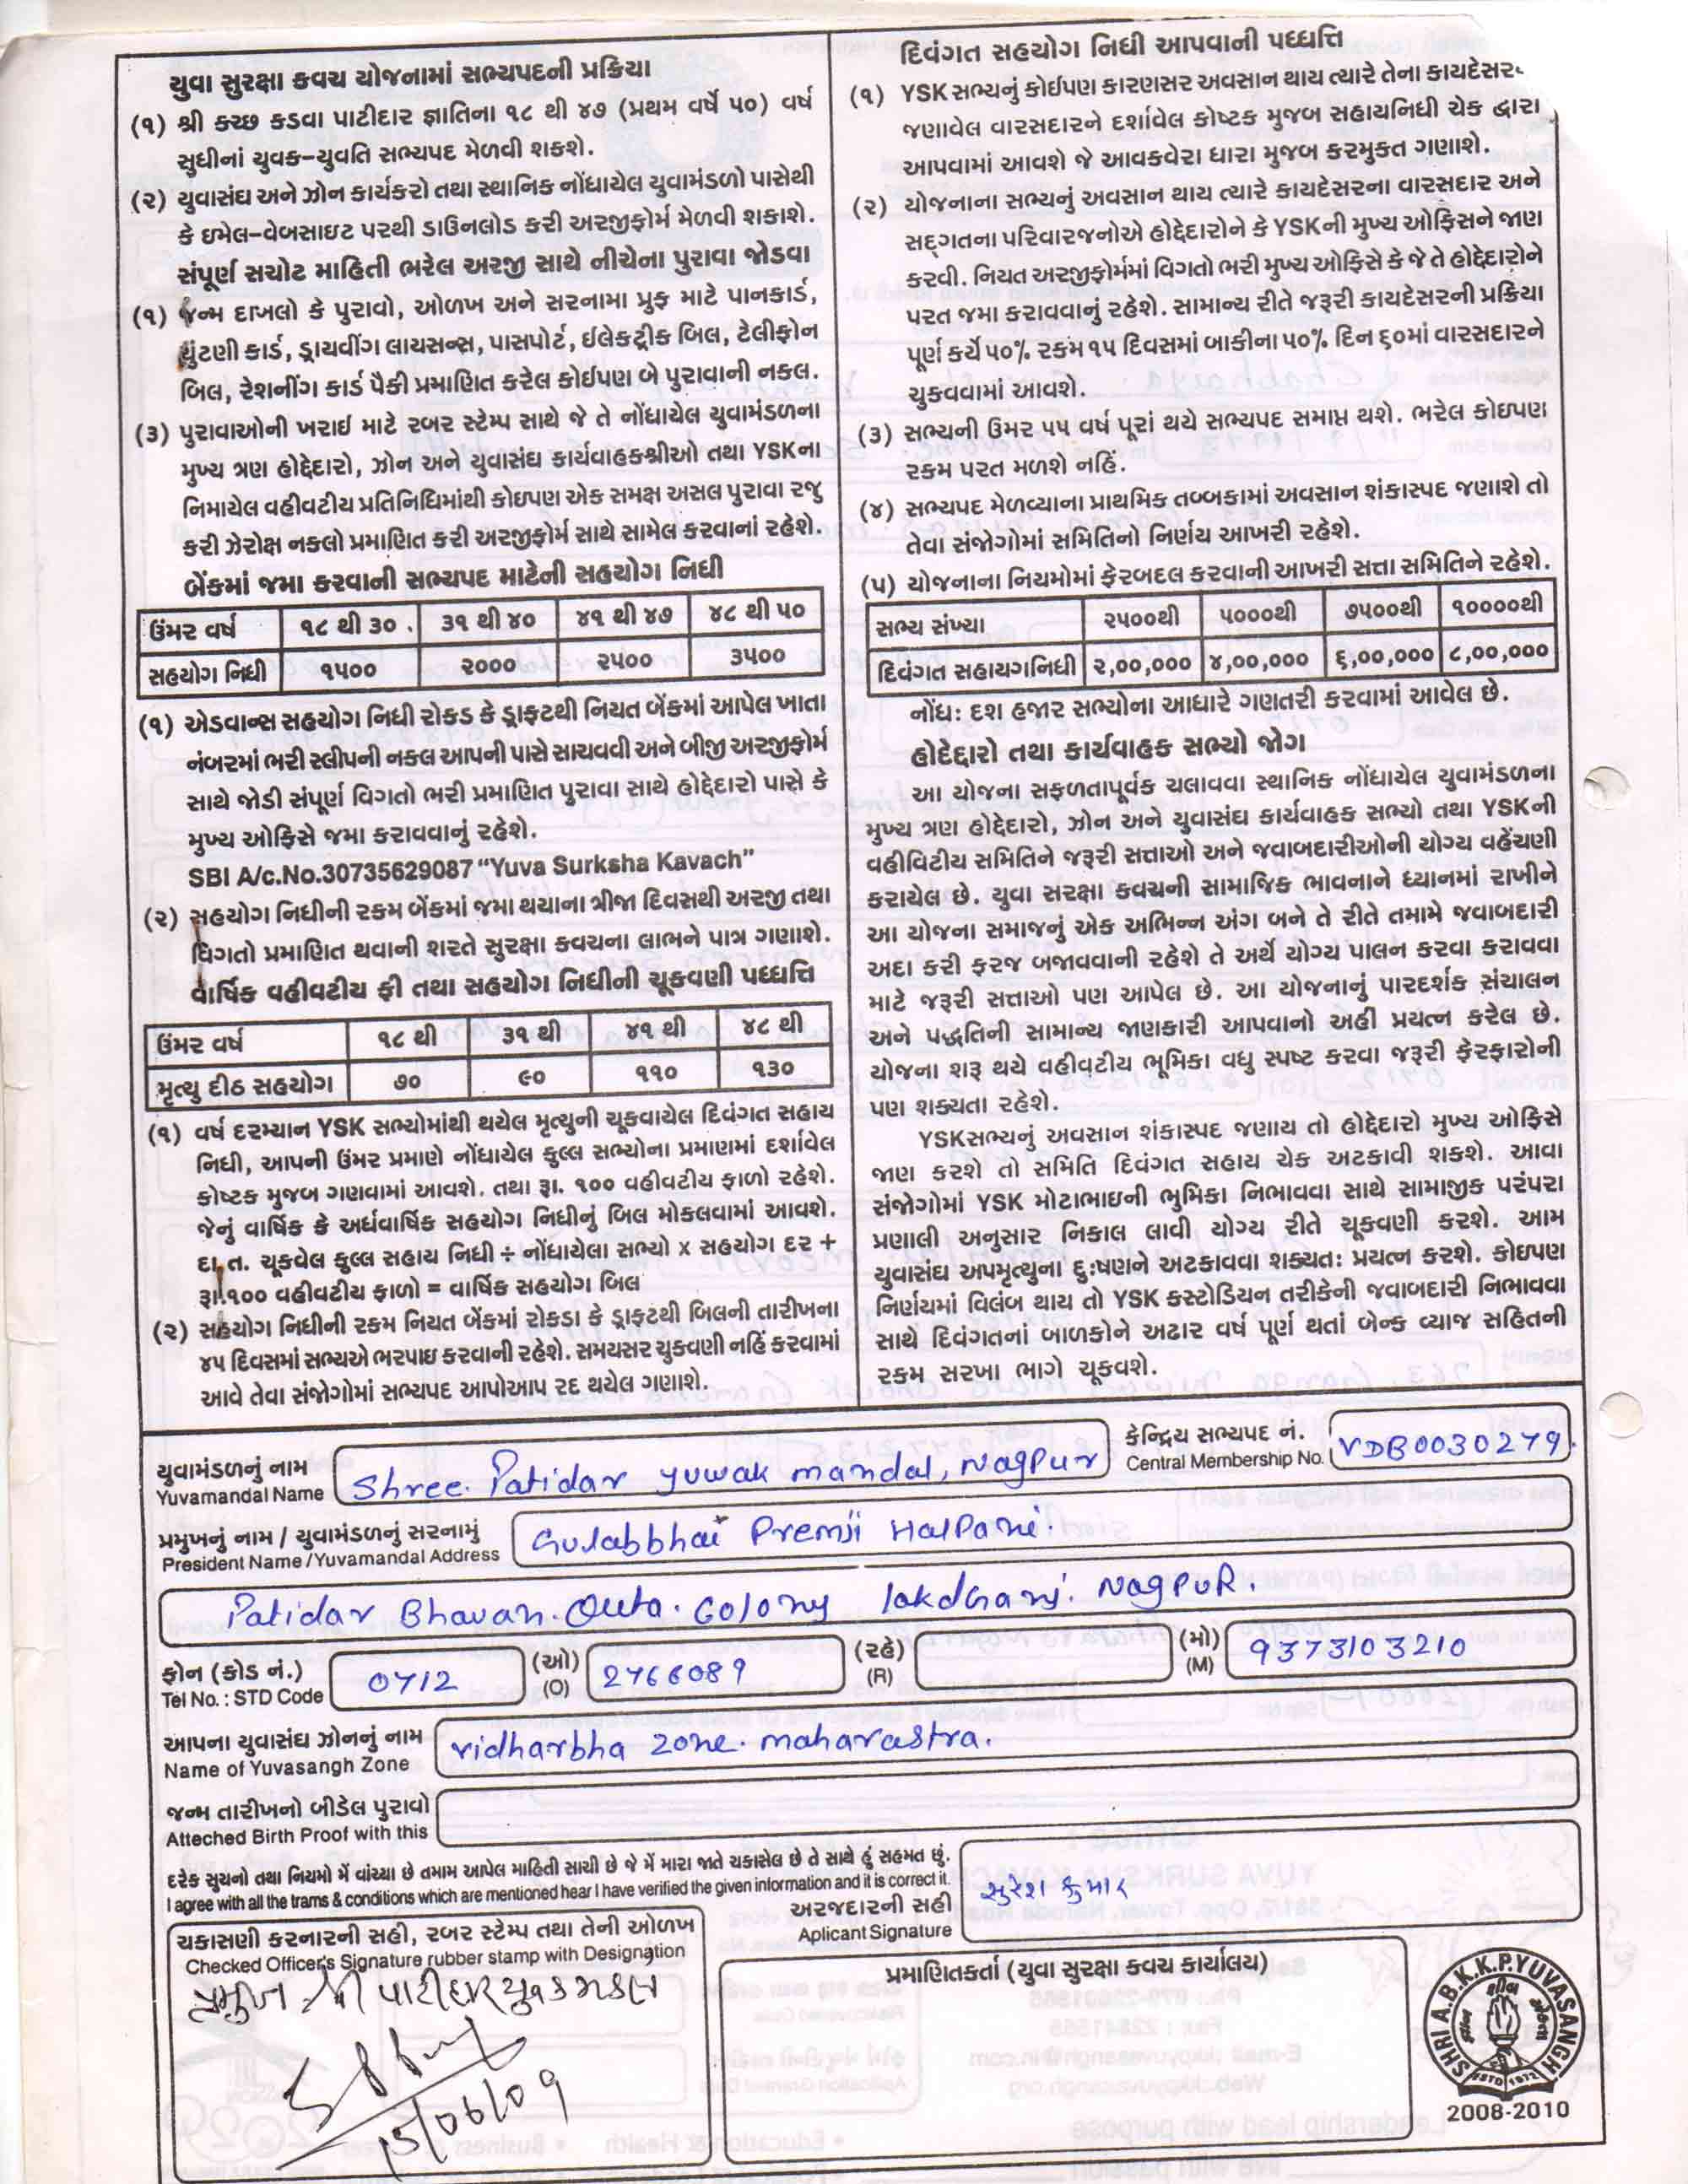 યુવા સુરક્ષા કવચ યોજનામાં સભ્યપદની પ્રક્રિયા
(૧) શ્રી કચ્છ કડવા પાટીદાર જ્ઞાતિના ૧૮ થી ૪૭ (પ્રથમ વર્ષે ૫૦) વર્ષ
સુધીનાં યુવક-યુવતિ સભ્યપદ મેળવી શકશે.
(૨) યુવાસંઘ અને ઝોન કાર્યકરો તથા સ્થાનિક નોંધાયેલ યુવામંડળો પાસેથી
કે ઇમેલ-વેબસાઇટ પરથી ડાઉનલોડ કરી અરજીફોર્મ મેળવી શકાશે.
સંપૂર્ણ સચોટ માહિતી ભરેલ અરજી સાથે નીચેના પુરાવા જોડવા
(૧) જન્મ દાખલો કે પુરાવો, ઓળખ અને સરનામા પ્રુફ માટે પાનકાર્ડ,
ચુંટણી કાર્ડ, ડ્રાયવીંગ લાયસન્સ, પાસપોર્ટ, ઈલેકટ્રીક બિલ, ટેલીફોન
બિલ, રેશનીંગ કાર્ડ પૈકી પ્રમાણિત કરેલ કોઈપણ બે પુરાવાની નકલ.
(૩) પુરાવાઓની ખરાઈ માટે રબર સ્ટેમ્પ સાથે જે તે નોંધાયેલ યુવામંડળના
મુખ્ય ત્રણ હોદ્દેદારો, ઝોન અને યુવાસંઘ કાર્યવાહકશ્રીઓ તથા YSKના
નિમાયેલ વહીવટીય પ્રતિનિધિમાંથી કોઇપણ એક સમક્ષ અસલ પુરાવા રજુ
કરી ઝેરોક્ષ નકલો પ્રમાણિત કરી અરજીફોર્મ સાથે સામેલ કરવાનાં રહેશે.
બેંકમાં જમા કરવાની સભ્યપદ માટેની સહયોગ નિધી
ઉંમર વર્ષ ૧૮ થી ૩૦ . ૩૧ થી ૪૦ ૪૧ થી ૪૭ ૪૮ થી ૫૦
સહયોગ નિધી ૧૫૦૦ ૨૦૦૦ ૨૫૦૦ ૩૫૦૦
(૧) એડવાન્સ સહયોગ નિધી રોકડ કે ડ્રાફટથી નિયત બેંકમાં આપેલ ખાતા
નંબરમાં ભરી સ્લીપની નકલ આપની પાસે સાચવવી અને બીજી અરજીફોર્મ
સાથે જોડી સંપૂર્ણ વિગતો ભરી પ્રમાણિત પુરાવા સાથે હોદ્દેદારો પાસે કે
મુખ્ય ઓફિસે જમા કરાવવાનું રહેશે.
SBI A/c.No.30735629087 “Yuva Surksha Kavach”
(૨) સહયોગ નિધીની રકમ બેંકમાં જમા થયાના ત્રીજા દિવસથી અરજી તથા
વિગતો પ્રમાણિત થવાની શરતે સુરક્ષા કવચના લાભને પાત્ર ગણાશે.
વાર્ષિક વહીવટીય ફી તથા સહયોગ નિધીની ચૂકવણી પધ્ધત્તિ
ઉંમર વર્ષ ૧૮ થી ૩૧ થી ૪૧ થી ૪૮ થી
મૃત્યુ દીઠ સહયોગ ૭૦ ૯૦ ૧૧૦ ૧૩૦
(૧) વર્ષ દરમ્યાન YSK સભ્યોમાંથી થયેલ મૃત્યુની ચૂકવાયેલ દિવંગત સહાય
નિધી, આપની ઉંમર પ્રમાણે નોંધાયેલ કુલ્લ સભ્યોના પ્રમાણમાં દર્શાવેલ
કોષ્ટક મુજબ ગણવામાં આવશે. તથા રૂા. ૧૦૦ વહીવટીય ફાળો રહેશે.
જેનું વાર્ષિક કે અર્ધવાર્ષિક સહયોગ નિધીનું બિલ મોકલવામાં આવશે.
દા.ત. ચૂકવેલ કુલ્લ સહાય નિધી ÷ નોંધાયેલા સભ્યો x સહયોગ દર +
રૂા.૧૦૦ વહીવટીય ફાળો = વાર્ષિક સહયોગ બિલ
(૨) સહયોગ નિધીની રકમ નિયત બેંકમાં રોકડા કે ડ્રાફટથી બિલની તારીખના
૪૫ દિવસમાં સભ્યએ ભરપાઇ કરવાની રહેશે. સમયસર ચુકવણી નહિં કરવામાં
આવે તેવા સંજોગોમાં સભ્યપદ આપોઆપ રદ થયેલ ગણાશે.
દિવંગત સહયોગ નિધી આપવાની પધ્ધત્તિ
(૧) YSK સભ્યનું કોઈપણ કારણસર અવસાન થાય ત્યારે તેના કાયદેસર
જણાવેલ વારસદારને દર્શાવેલ કોષ્ટક મુજબ સહાયનિધી ચેક દ્વારા
આપવામાં આવશે જે આવકવેરા ધારા મુજબ કરમુકત ગણાશે.
(૨) યોજનાના સભ્યનું અવસાન થાય ત્યારે કાયદેસરના વારસદાર અને
સદ્ગતના પરિવારજનોએ હોદ્દેદારોને કે YSKની મુખ્ય ઓફિસને જાણ
કરવી. નિયત અરજીફોર્મમાં વિગતો ભરી મુખ્ય ઓફિસે કે જે તે હોદ્દેદારોને
પરત જમા કરાવવાનું રહેશે. સામાન્ય રીતે જરૂરી કાયદેસરની પ્રક્રિયા
પૂર્ણ કર્યે ૫૦% રકમ ૧૫ દિવસમાં બાકીના ૫૦% દિન ૬૦માં વારસદારને
ચુકવવામાં આવશે.
(૩) સભ્યની ઉંમર ૫૫ વર્ષ પૂરાં થયે સભ્યપદ સમાપ્ત થશે. ભરેલ કોઇપણ
રકમ પરત મળશે નહિં.
(૪) સભ્યપદ મેળવ્યાના પ્રાથમિક તબ્બકામાં અવસાન શંકાસ્પદ જણાશે તો
તેવા સંજોગોમાં સમિતિનો નિર્ણય આખરી રહેશે.
(૫) યોજનાના નિયમોમાં ફેરબદલ કરવાની આખરી સત્તા સમિતિને રહેશે.
સભ્ય સંખ્યા ૨૫૦૦થી ૫૦૦૦થી ૭૫૦૦થી ૧૦૦૦૦થી
દિવંગત સહાયગનિધી ૨,૦૦,૦૦૦ ૪,૦૦,૦૦૦ ૬,૦૦,૦૦૦ ૮,૦૦,૦૦૦
નોંધઃ દશ હજાર સભ્યોના આધારે ગણતરી કરવામાં આવેલ છે.
હોદેદારો તથા કાર્યવાહક સભ્યો જોગ
આ યોજના સફળતાપૂર્વક ચલાવવા સ્થાનિક નોંધાયેલ યુવામંડળના
મુખ્ય ત્રણ હોદ્દેદારો, ઝોન અને યુવાસંઘ કાર્યવાહક સભ્યો તથા YSKની
વહીવિટીય સમિતિને જરૂરી સત્તાઓ અને જવાબદારીઓની યોગ્ય વહેંચણી
કરાયેલ છે. યુવા સુરક્ષા કવચની સામાજિક ભાવનાને ધ્યાનમાં રાખીને
આ યોજના સમાજનું એક અભિન્ન અંગ બને તે રીતે તમામે જવાબદારી
અદા કરી ફરજ બજાવવાની રહેશે તે અર્થે યોગ્ય પાલન કરવા કરાવવા
માટે જરૂરી સત્તાઓ પણ આપેલ છે. આ યોજનાનું પારદર્શક સંચાલન
અને પદ્ધતિની સામાન્ય જાણકારી આપવાનો અહી પ્રયત્ન કરેલ છે.
યોજના શરૂ થયે વહીવટીય ભૂમિકા વધુ સ્પષ્ટ કરવા જરૂરી ફેરફારોની
પણ શક્યતા રહેશે.
YSKસભ્યનું અવસાન શંકાસ્પદ જણાય તો હોદ્દેદારો મુખ્ય ઓફિસે
જાણ કરશે તો સમિતિ દિવંગત સહાય ચેક અટકાવી શકશે. આવા
સંજોગોમાં YSK મોટાભાઇની ભુમિકા નિભાવવા સાથે સામાજીક પરંપરા
પ્રણાલી અનુસાર નિકાલ લાવી યોગ્ય રીતે ચૂકવણી કરશે. આમ
યુવાસંઘ અપમૃત્યુના દુઃષણને અટકાવવા શક્યતઃ પ્રયત્ન કરશે. કોઇપણ
નિર્ણયમાં વિલંબ થાય તો YSK કસ્ટોડિયન તરીકેની જવાબદારી નિભાવવા
સાથે દિવંગતનાં બાળકોને અઢાર વર્ષ પૂર્ણ થતાં બેન્ક વ્યાજ સહિતની
રકમ સરખા ભાગે ચૂકવશે.
યુવામંડળનું નામ
Yuvamandal Name Shree. Patidar yuwak mandal, Nagpur
કેન્દ્રિય સભ્યપદ નં.
Central Membership No. VDB0030279.
પ્રમુખનું નામ / યુવામંડળનું સરનામું
President Name / Yuvamandal Address Gulabbhai Premji Halpani.
Patidar Bhavan. Queta. Colony lakdGanj. Nagpur.
ફોન (કોડ નં.) (ઓ) (રહે) (મો)
Tel No. : STD Code 0712 (O) 2766089 (R) (M) 9373103210
આપના યુવાસંઘ ઝોનનું નામ
Name of Yuvasangh Zone vidharbha zone. maharastra.
જન્મ તારીખનો બીડેલ પુરાવો
Atteched Birth Proof with this
દરેક સુચનો તથા નિયમો મેં વાંચ્યા છે તમામ આપેલ માહિતી સાચી છે જે મેં મારા જાતે ચકાસેલ છે તે સાથે હું સહમત છું.
I agree with all the trams & conditions which are mentioned hear I have verified the given information and it is correct it.
અરજદારની સહી
Aplicant Signature સુરેશ કુમાર
ચકાસણી કરનારની સહી, રબર સ્ટેમ્પ તથા તેની ઓળખ
Checked Officer's Signature rubber stamp with Designation
પ્રમુખ શ્રી પાટીદાર યુવક મંડલ
15/06/09
પ્રમાણિતકર્તા (યુવા સુરક્ષા કવચ કાર્યાલય)
SHRI A.B.K.K.P.YUVASANGH
ESTD 1972
2008-2010